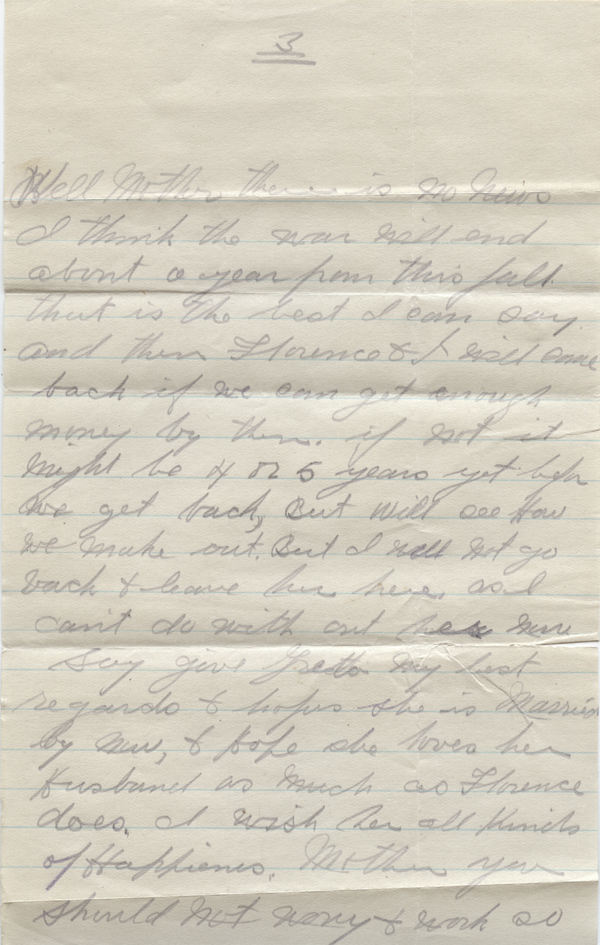 3
Well Mother there is no News
I think the war will end
about a year from this fall.
that is the best I can say.
and then Florence & I will come
back if we can get enough
money by then. if not it
might be 4 or 5 years yet before
we get back, But will see How
we make out. But I will Not go
back & leave her here. as I
can't do with out her now
Say give Greta my best
regards & hopes she is Married
by now, & Hope she loves her
Husband as Much as Florence
does. I wish her all Kinds
of Happienes. Mother you
should Not worry & work so